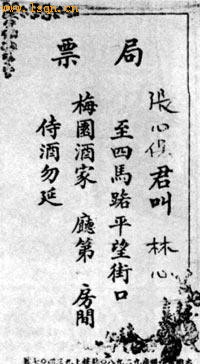 www.lsgn.cn
局票
張心 君叫 林心
至四馬路平望街口
梅園酒家 廳第 房間
侍酒勿延